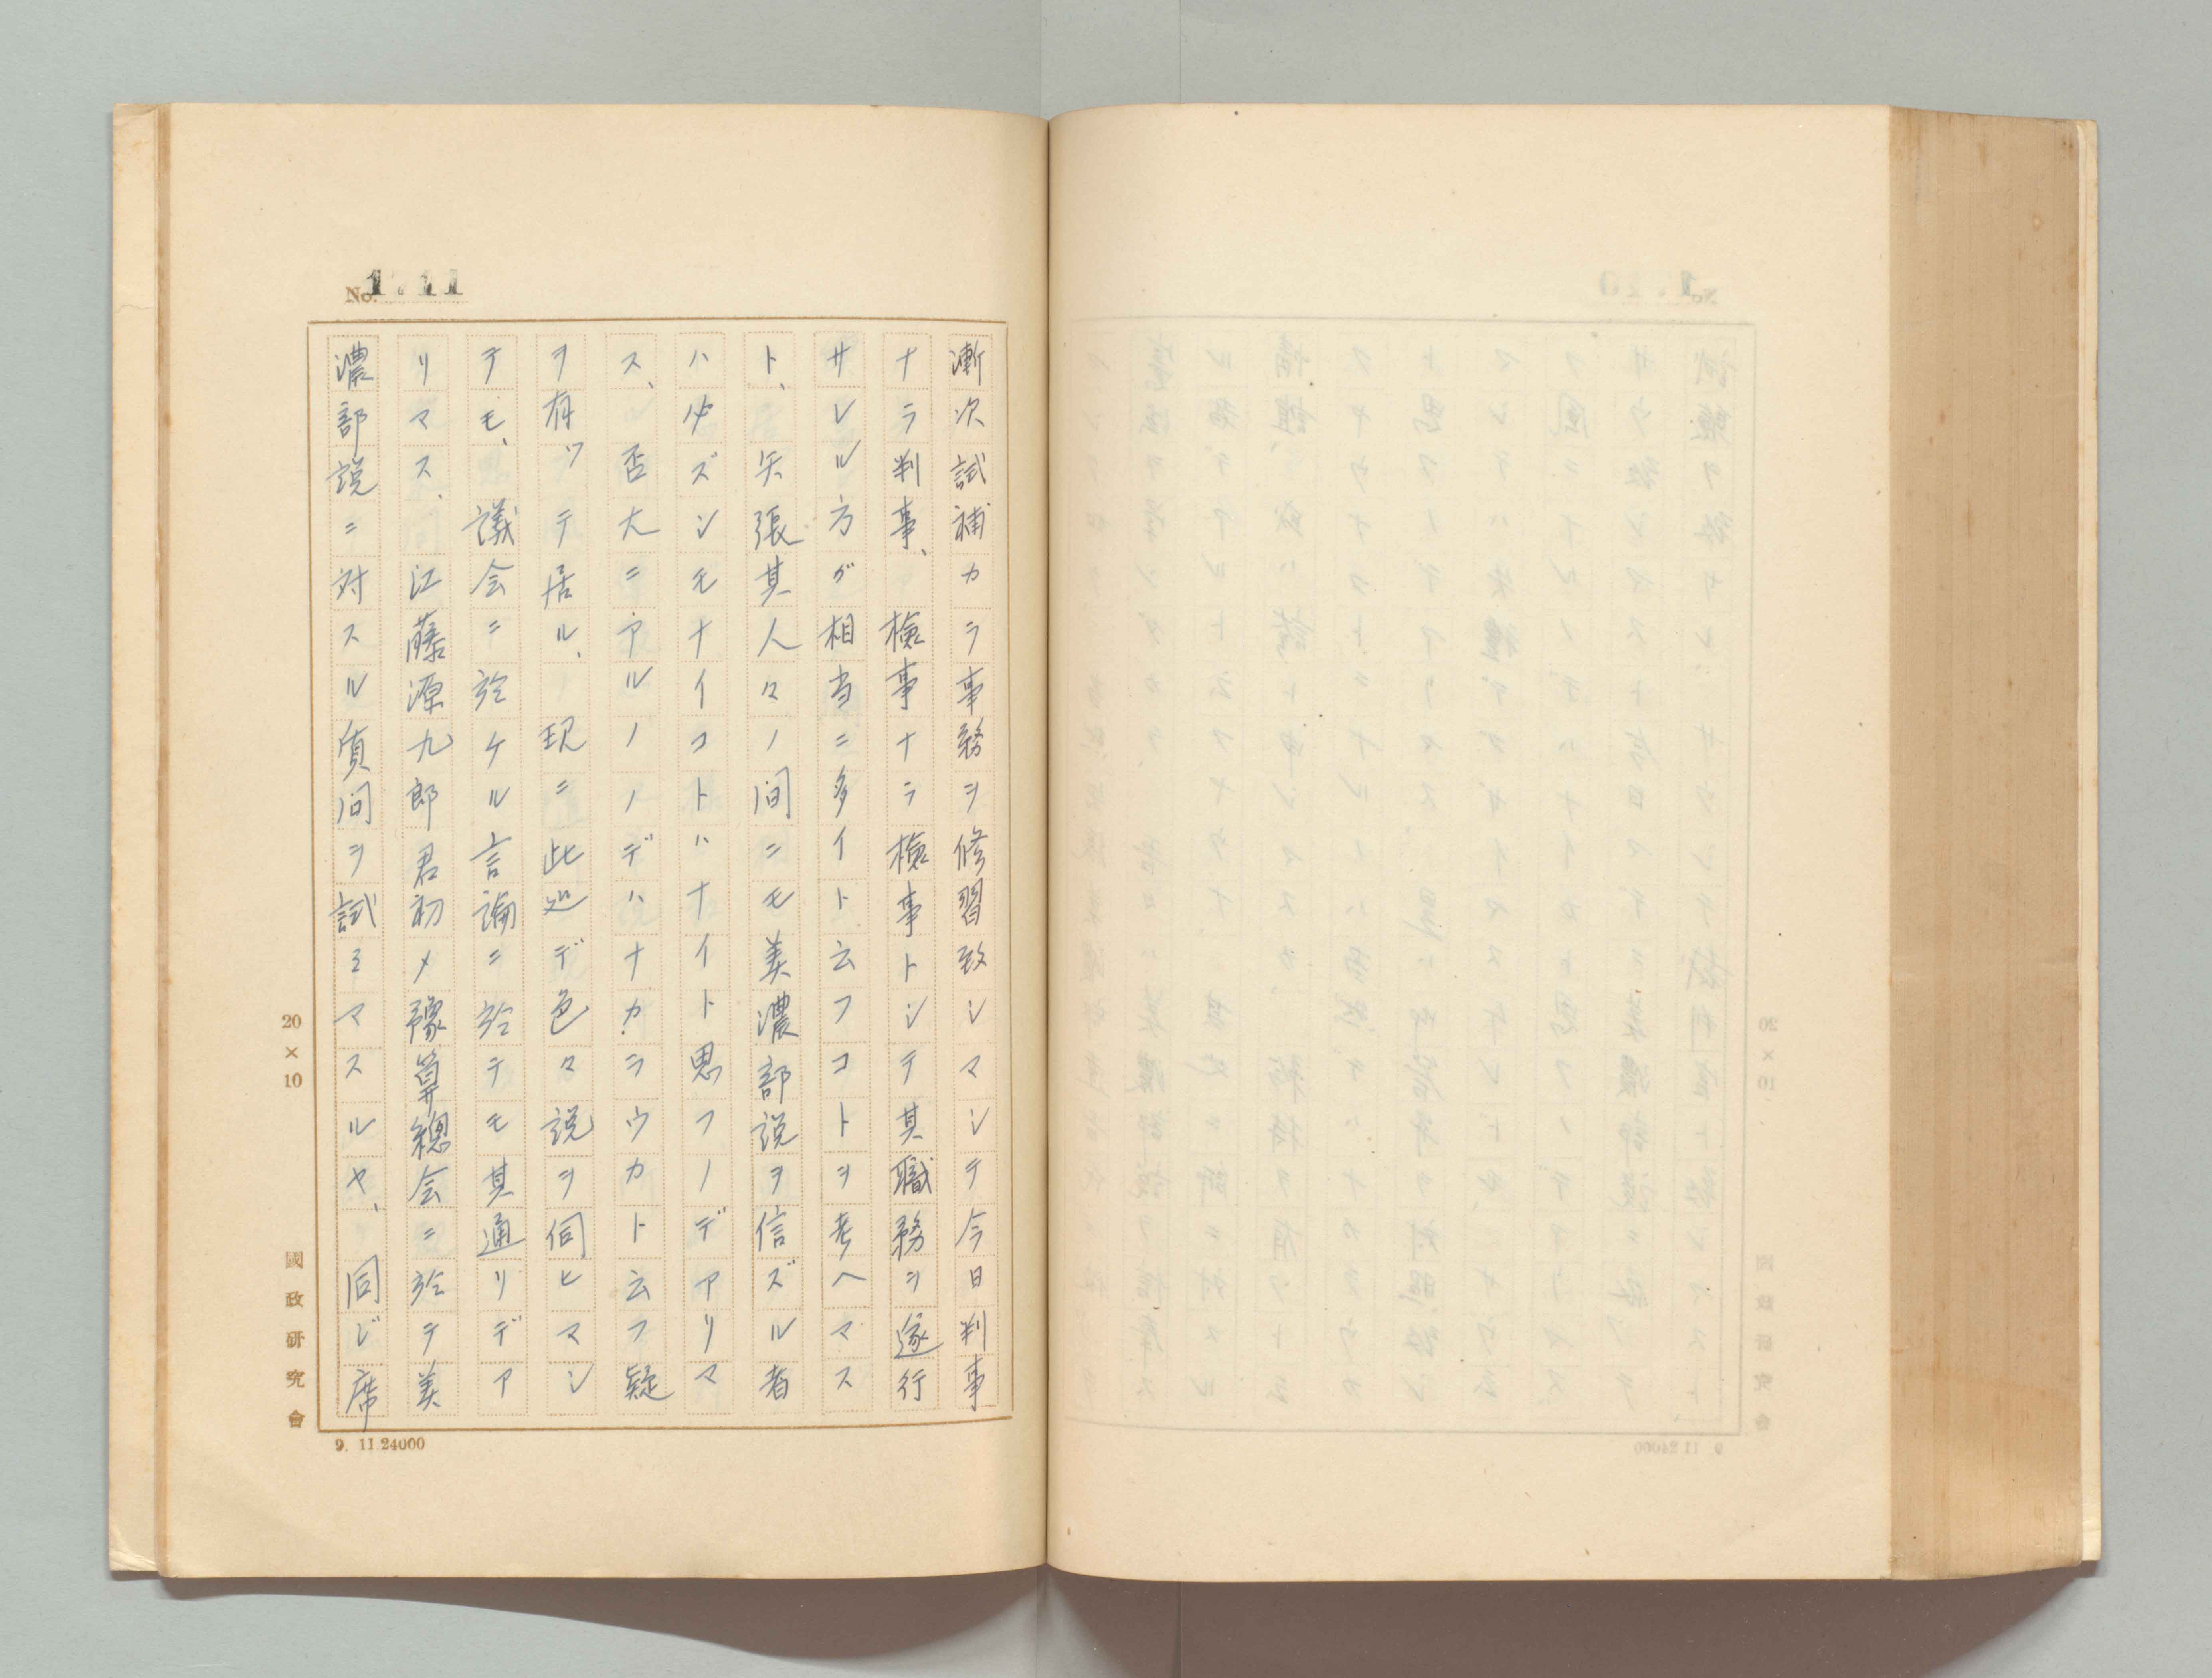 No. 1.11
漸次試補カラ事務ヲ修習致シマシテ今日判事
ナラ判事、検事ナラ検事トシテ其職務ヲ遂行
サレル方ガ相当ニ多イト云フコトヲ考ヘマス
ト、矢張其人々ノ間ニモ美濃部説ヲ信ズル者
ハ必ズシモナイコトハナイト思フノデアリマ
ス、否大ニアルノノデハナカラウカト云フ疑
ヲ有ツテ居ル、現ニ此処デ色々説ヲ伺ヒマシ
テモ、議会ニ於ケル言論ニ於テモ其通リデア
リマス、江藤源九郎君初メ豫算總会ニ於テ美
濃部説ニ対スル質問ヲ試ミマスルヤ、同ジ席
20×10
國政研究會
9. 11 24000